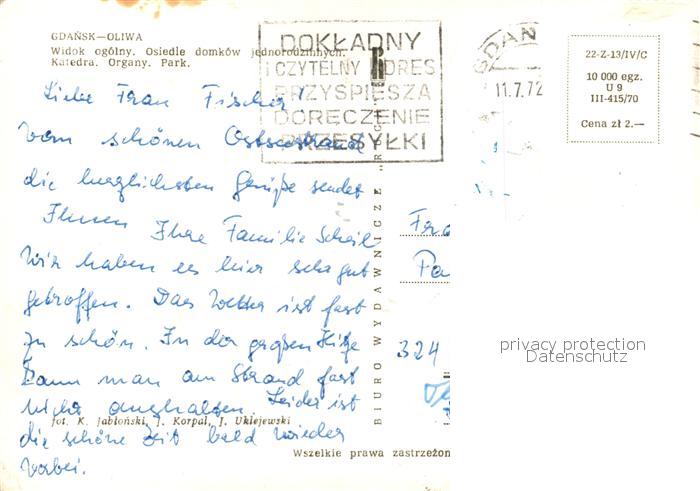 GDAŃSK—OLIWA
Widok ogólny. Osiedle domków jednorodzinnych.
Katedra. Organy. Park.
DOKŁADNY
I CZYTELNY ADRES
PRZYSPIESZA
DORĘCZENIE
PRZESYŁKI
GDAŃ
11.7.72
22-Z-13/IV/C
10 000 egz.
U 9
III-415/70
Cena zł 2.—
Liebe Frau Fischer!
Vom schönen Ostseestrand
die herzlichsten Grüße sendet
Ihnen Ihre Familie Scheil
Wir haben es hier sehr gut
getroffen. Das Wetter ist fast
zu schön. In der großen Hitze
kann man am Strand fast
nicht aushalten. Leider ist
die schöne Zeit bald wieder
vorbei.
fot. K. Jabłoński, J. Korpal, J. Uklejewski
BIURO WYDAWNICZE „R
Fra
324
privacy protection
Datenschutz
Wszelkie prawa zastrzeżon